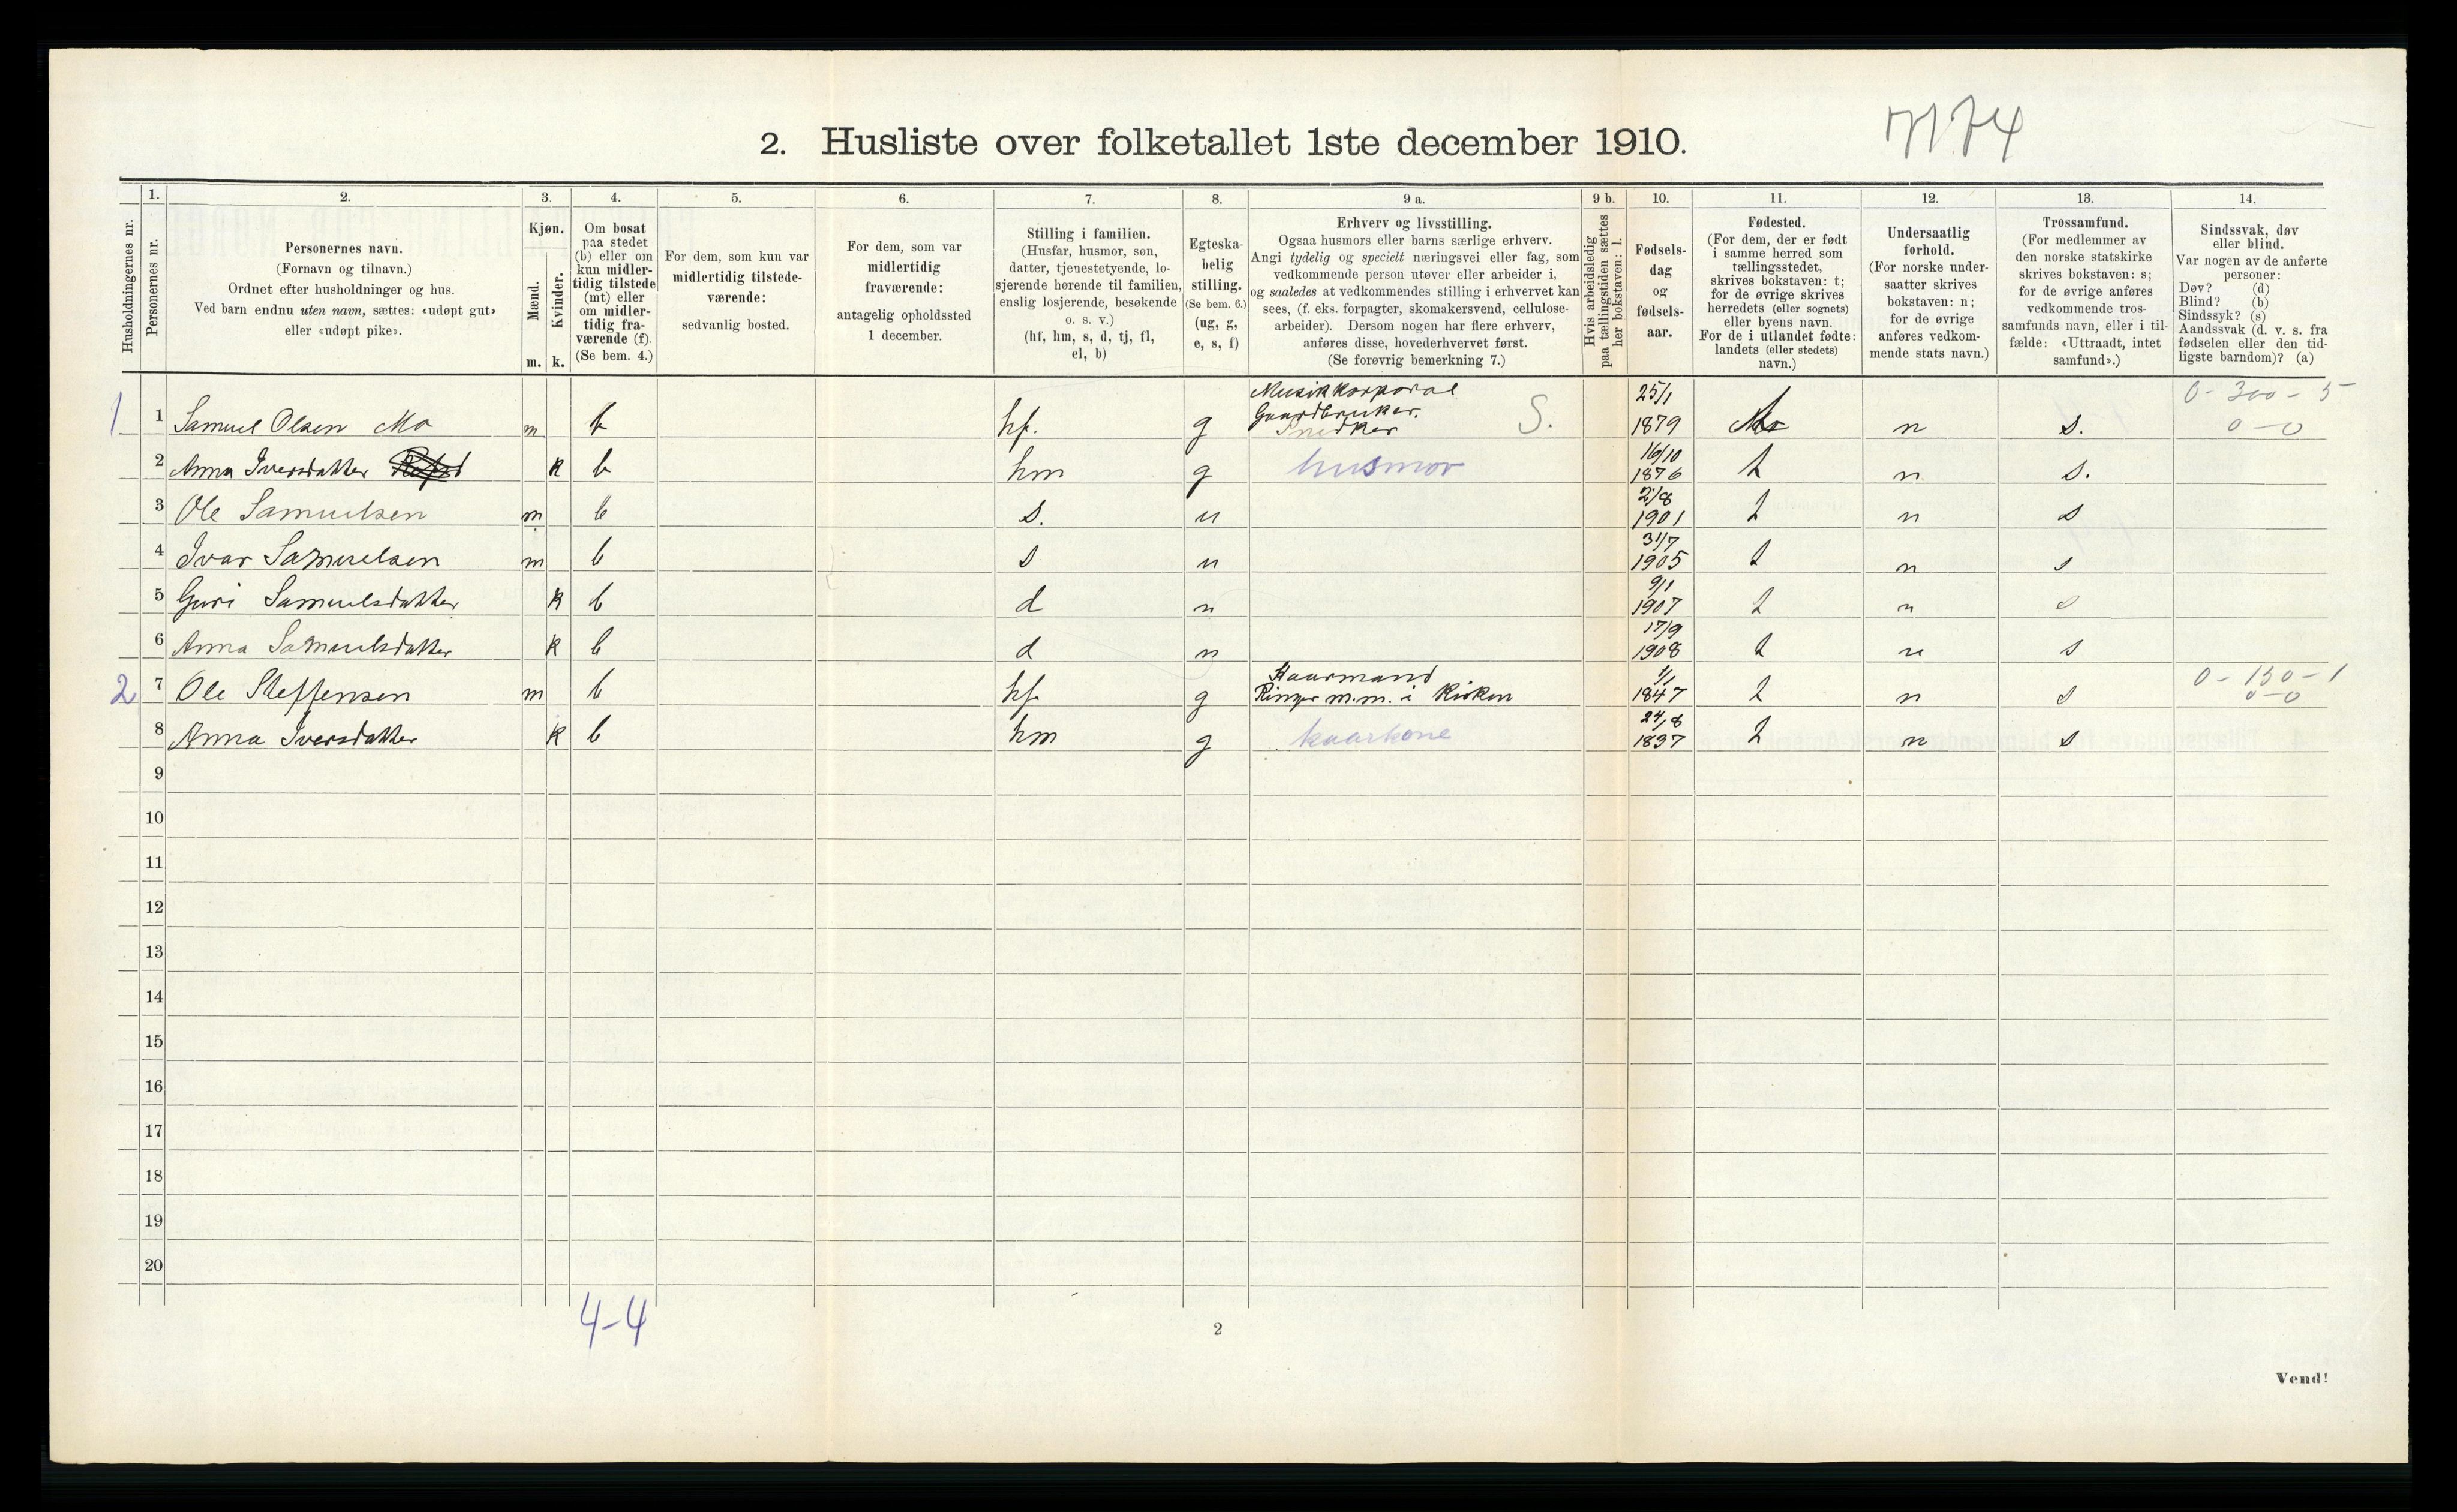 7174
2. Husliste over folketallet 1ste december 1910.
Husholdningernes nr.
1. Personernes nr.
2. Personernes navn.
(Fornavn og tilnavn.)
Ordnet efter husholdninger og hus.
Ved barn endnu uten navn, sættes: «udøpt gut»
eller «udøpt pike».
3. Kjøn.
Mænd. m.
Kvinder. k.
4. Om bosat
paa stedet
(b) eller om
kun midler-
tidig tilstede
(mt) eller
om midler-
tidig fra-
værende (f).
(Se bem. 4.)
5. For dem, som kun var
midlertidig tilstede-
værende:
sedvanlig bosted.
6. For dem, som var
midlertidig
fraværende:
antagelig opholdssted
1 december.
7. Stilling i familien.
(Husfar, husmor, søn,
datter, tjenestetyende, lo-
sjerende hørende til familien,
enslig losjerende, besøkende
o. s. v.)
(hf, hm, s, d, tj, fl,
el, b)
8. Egteska-
belig
stilling.
(Se bem. 6.)
(ug, g,
e, s, f)
9 a. Erhverv og livsstilling.
Ogsaa husmors eller barns særlige erhverv.
Angi tydelig og specielt næringsvei eller fag, som
vedkommende person utøver eller arbeider i,
og saaledes at vedkommendes stilling i erhvervet kan
sees, (f. eks. forpagter, skomakersvend, cellulose-
arbeider). Dersom nogen har flere erhverv,
anføres disse, hovederhvervet først.
(Se forøvrig bemerkning 7.)
9 b. Hvis arbeidsledig
paa tællingstiden sættes
her bokstaven: l.
10. Fødsels-
dag
og
fødsels-
aar.
11. Fødested.
(For dem, der er født
i samme herred som
tællingsstedet,
skrives bokstaven: t;
for de øvrige skrives
herredets (eller sognets)
eller byens navn.
For de i utlandet fødte:
landets (eller stedets)
navn.)
12. Undersaatlig
forhold.
(For norske under-
saatter skrives
bokstaven: n;
for de øvrige
anføres vedkom-
mende stats navn.)
13. Trossamfund.
(For medlemmer av
den norske statskirke
skrives bokstaven: s;
for de øvrige anføres
vedkommende tros-
samfunds navn, eller i til-
fælde: «Uttraadt, intet
samfund».)
14. Sindssvak, døv
eller blind.
Var nogen av de anførte
personer:
Døv? (d)
Blind? (b)
Sindssyk? (s)
Aandssvak (d. v. s. fra
fødselen eller den tid-
ligste barndom)? (a)
1 1 Samuel Olsen Mo m b hf. g Musikkorporal Gaardbruker. Snedker S. 25/1 1879 n s. 0-300-5 0-0
2 Anna Iversdatter k b hm g husmor 16/10 1876 t n s.
3 Ole Samuelsen m b s. u 2/8 1901 t n s
4 Ivar Samuelsen m b s u 31/7 1905 t n s
5 Guri Samuelsdatter k b d u 9/1 1907 t n s
6 Anna Samuelsdatter k b d u 17/9 1908 t n s
2 7 Ole Steffensen m b hf. g Kaarmand Ringer m.m. i Kirken 1/1 1847 t n s 0-130-1 0-0
8 Anna Iversdatter k b hm g kaarkone 24/8 1837 t n s
9
10
11
12
13
14
15
16
17
18
19
20
4-4
2
Vend!